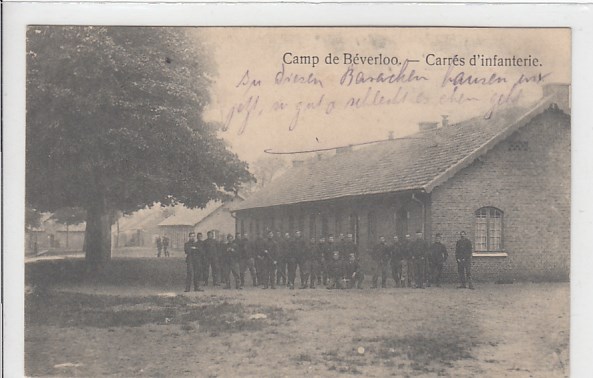 Camp de Béverloo. — Carrés d'infanterie.
In diesen Baracken hausen wir
jetzt, so gut o. schlecht es eben geht